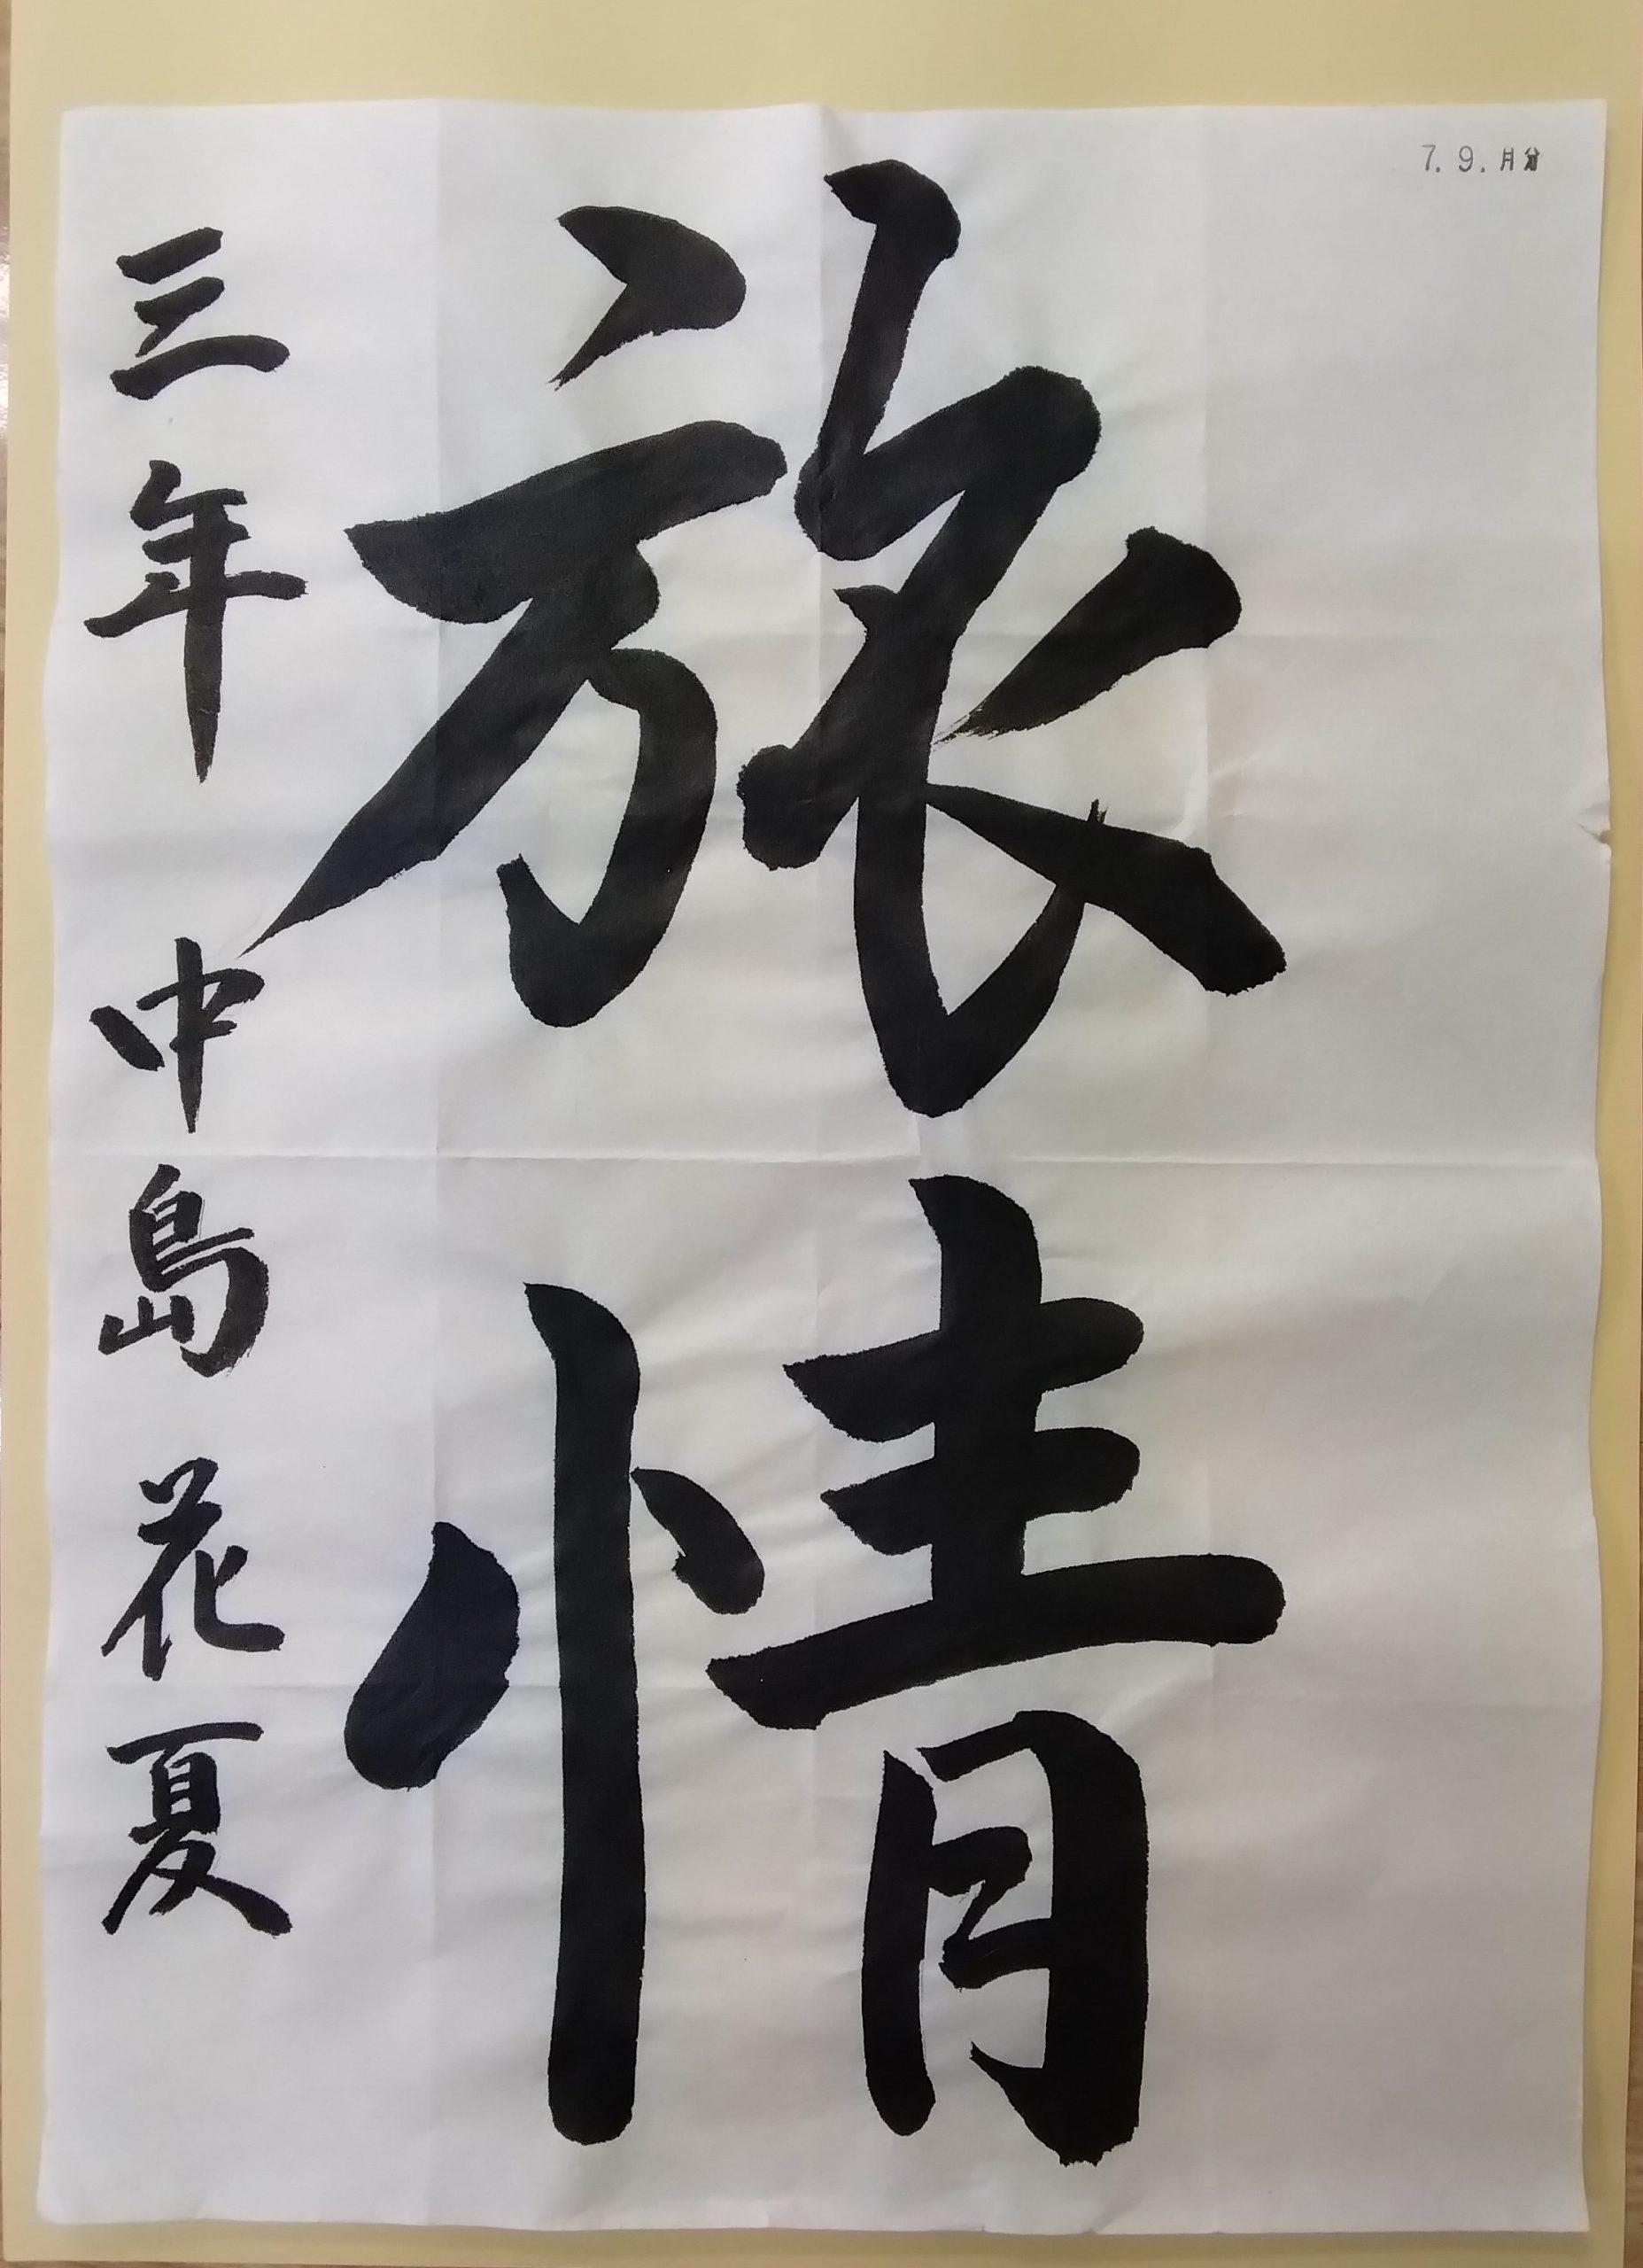 7.9.月分
旅情
三年 中島花夏